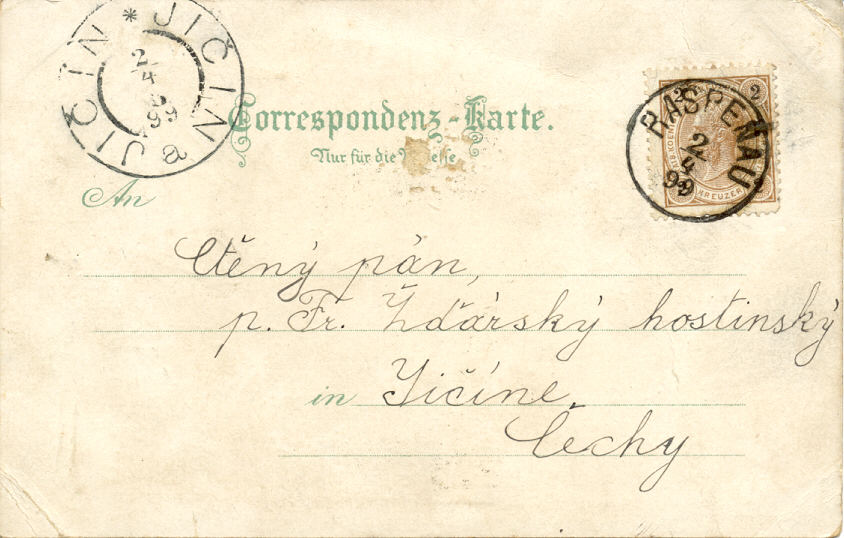 JIČÍN * JIČIN a
2/4 99
Correspondenz-Karte.
Nur für die
RASPENAU
2/4 99
2 2
KREUZER
An
Ctěný pán,
p. Fr. Žďárský hostinský
in Jičíne,
Čechy